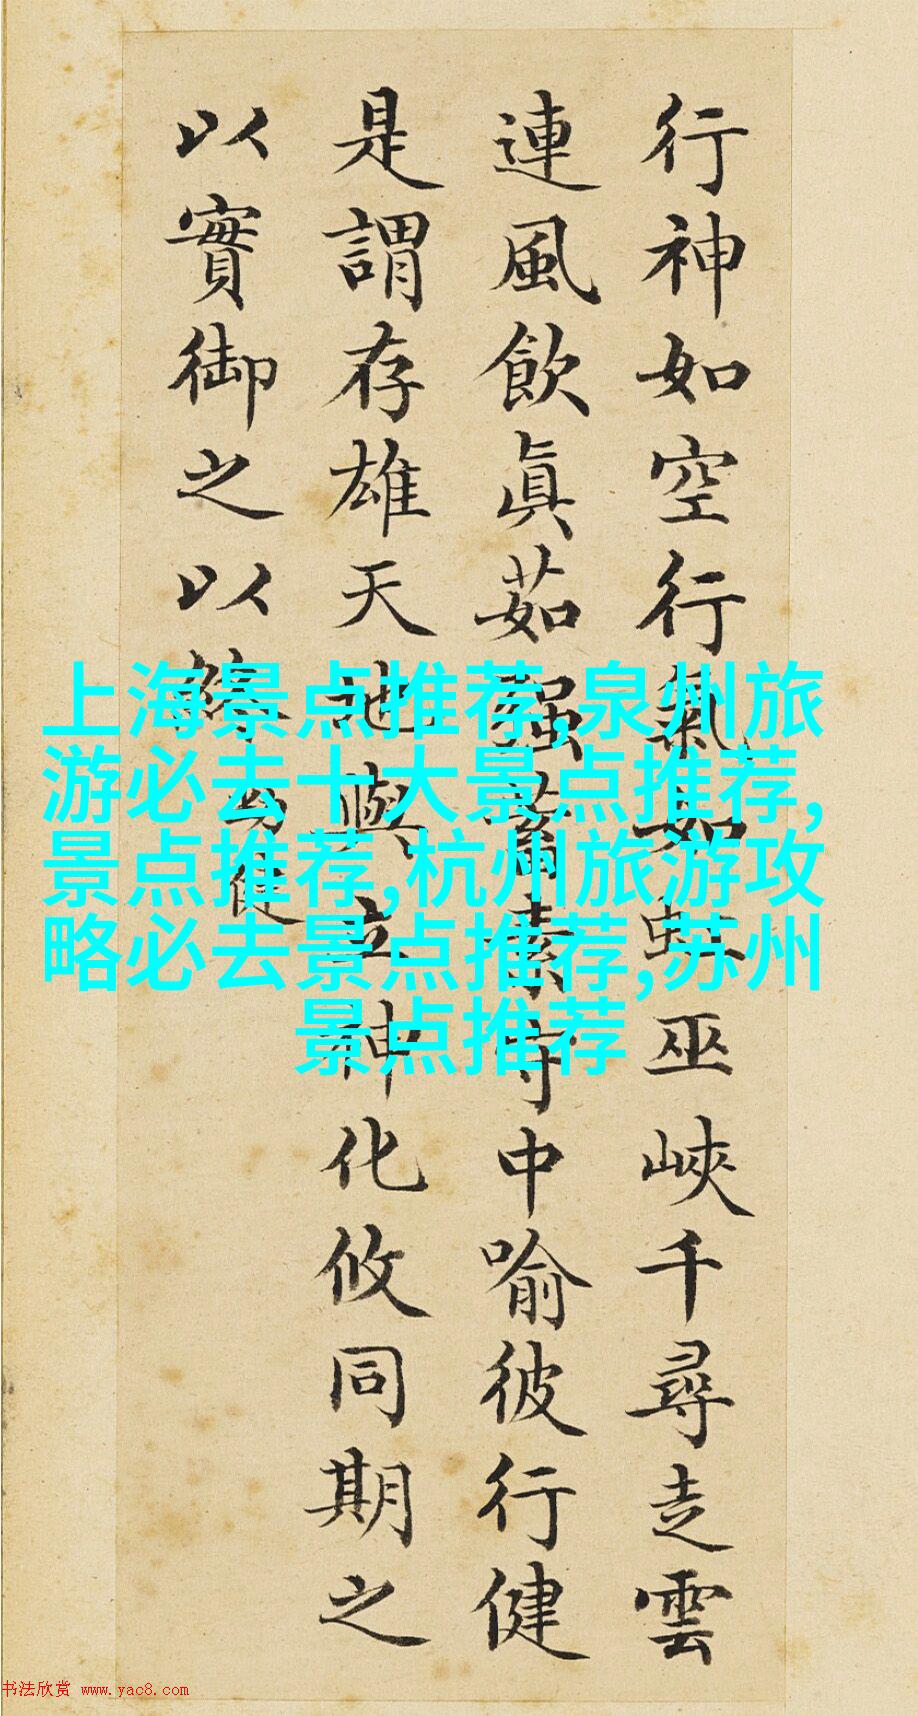 行神如空行氣如虹巫峽千尋走雲
連風飲眞茹强蓄素守中喻彼行健
是謂存雄天地與立神化攸同期之
以實御之以終
勁健
上海景点推荐,泉州旅
游必去十大景点推荐,
景点推荐,杭州旅游攻
略必去景点推荐,苏州
景点推荐
书法欣赏 www.yac8.com